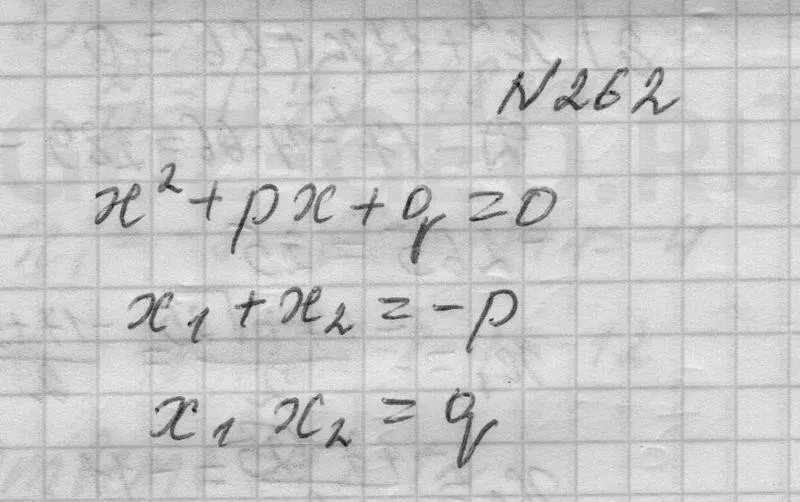 N262
x² + px + q = 0
x₁ + x₂ = -p
x₁ x₂ = q